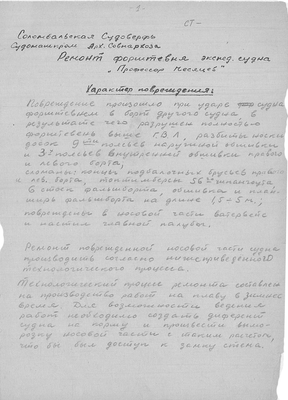 - 1 -
СТ-
Соломбальская Судоверфь
Судоконтрлом Арх. Совнархоза
Ремонт форштевня экспед. судна
„Профессор Месяцев"
Характер повреждения:
Повреждение произошло при ударе судна
форштевнем в борт другого судна в
результате чего разрушен полностью
форштевень выше Г.В.Л., разбиты носки
досок 9ти поясьев наружной обшивки
и 3х поясьев внутренней обшивки правого
и левого борта,
сломаны: концы подпалубных брусьев прав.
и лев. борта, топтимберсы 5го шпангоута
6 стоек фальшборта, обшивка и план-
ширь фальшборта на длине 1,5-5 м.;
повреждены в носовой части ватервейс
и настил главной палубы.
Ремонт поврежденной носовой части судна
производить согласно нижеприведенного
технологического процесса.
Технологический процесс ремонта составлен
на производство работ на плаву в зимнее
время. Для возможности ведения
работ необходимо создать диферент
судна на корму и произвести выко-
розку носовой части с таким расчетом,
что бы был доступ к замку стема.